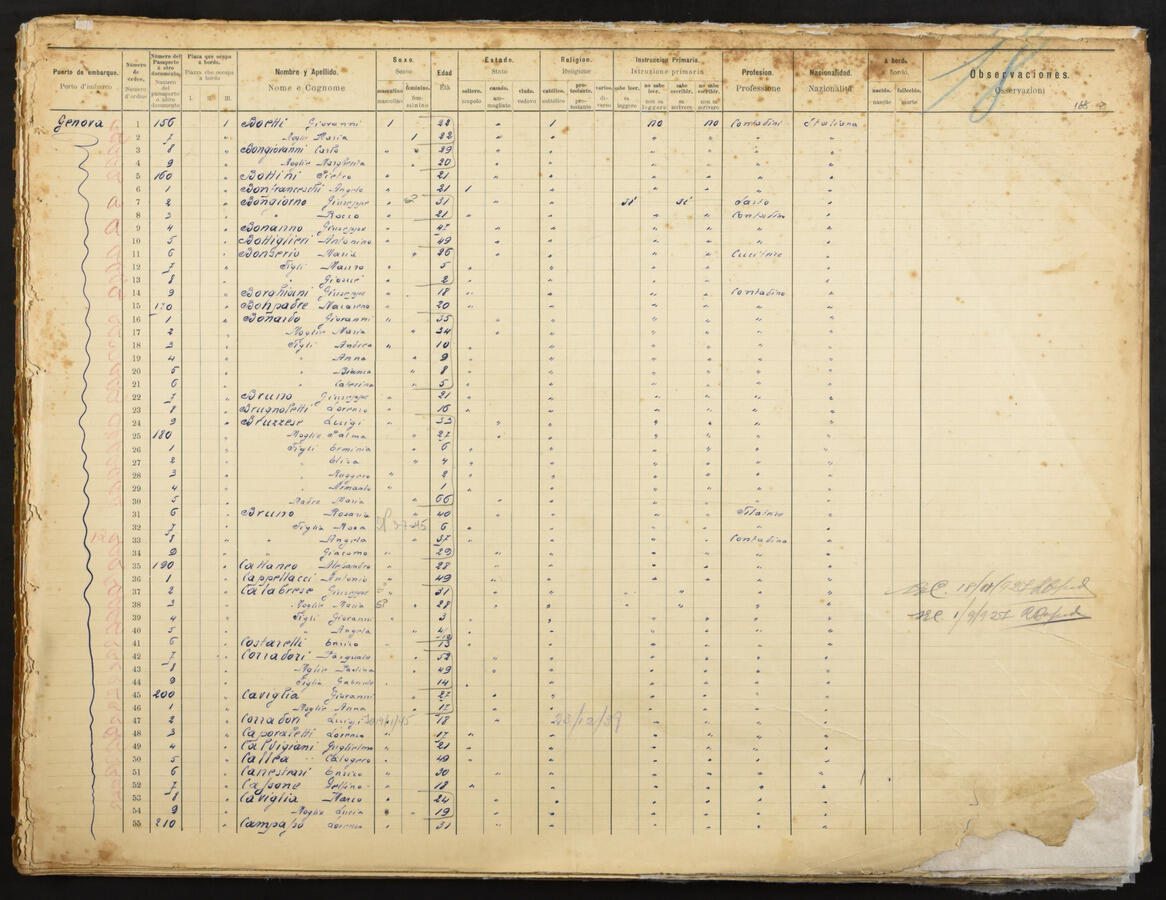 Puerto de embarque. Número de orden. Número del Pasaporte ú otro documento. Plaza que ocupa á bordo Nombre y Apellido. Sexo. Edad Estado. Religion. Instruccion Primaria. Profesion. Nacionalidad. á bordo. Observaciones.
Porto d'imbarco Numero d'ordine Numero del passaporto o altro documento Piazza che occupa a bordo Nome e Cognome Sesso Età Stato Religione Istruzione primaria Professione Nazionalità bordo. Osservazioni
I. II. III. masculino femenino. soltero. casado. viudo. católico. protestante. varios. sabe leer. no sabe leer. sabe escribir. no sabe escribir. nacido. fallecido.
maschino femminino scapolo ammogliato vedovo cattolico protestante diverse sa leggere non sa leggere sa scrivere non sa scrivere nascite morte
Genova 1 156 1 Boetti Giovanni 1 22 " 1 no no Contadini Italiana
2 7 " Moglie Maria 1 22
3 8 " Bongiovanni Carlo " 29
4 9 " Moglie Margherita " 20
5 160 " Bottini Pietro " 21
6 1 " Bonfranceschi Angelo " 21 1
7 2 " Bongiorno Giuseppe " 31 si si Sarto
8 3 " " Rocco " 21 Contadino
9 4 " Bonanno Giuseppe " 42
10 5 " Bottiglieri Antonino " 49
11 6 " Bonserio Maria " 26 Cucitrice
12 7 " Figli Mauro " 5
13 8 " " Giosué " 2
14 9 " Borghiani Giuseppe " 18 Contadino
15 170 " Bonpadre Nazareno " 20
16 1 " Bonardo Giovanni " 35
17 2 " Moglie Maria " 34
18 3 " Figli Andrea " 10
19 4 " " Anna " 9
20 5 " " Bianca " 8
21 6 " " Caterina " 5
22 7 " Bruno Giuseppe " 21
23 8 " Brugnoletti Lorenzo " 16
24 9 " Bruzzese Luigi " 33
25 180 " Moglie Palma " 27
26 1 " Figli Erminia " 6
27 2 " " Elisa " 4
28 3 " " Ruggero " 2
29 4 " " Armando " 1
30 5 " Madre Maria " 66
31 6 " Bruno Rosaria " 40 Filatrice
32 7 " Figlia Rosa 6
33 8 " " Angela " 37 Contadina
34 9 " " Giacomo " 29
35 190 " Cattaneo Alessandro " 28
36 1 " Cappellacci Antonio " 49
37 2 " Calabrese Giuseppe " 31
38 3 " Moglie Maria " 28
39 4 " Figli Giovanni " 3
40 5 " " Angela " 4
41 6 " Costarelli Enrico " 13
42 7 " Corradori Pasquale " 52
43 8 " Moglie Paolina " 49
44 9 " Figlia Gabriele " 14
45 200 " Caviglia Giovanni " 27
46 1 " Moglie Anna " 17
47 2 " Corradori Luigi 18 23/12/39
48 3 " Caporaletti Lorenzo " 17
49 4 " Caldigiani Guglielmo " 21
50 5 " Callea Calogero " 49
51 6 " Canestrari Enrico " 30
52 7 " Capone Delfino " 18
53 8 " Caviglia Marco " 24
54 9 " Moglie Lucia " 19
55 210 " Campasso Lorenzo " 31